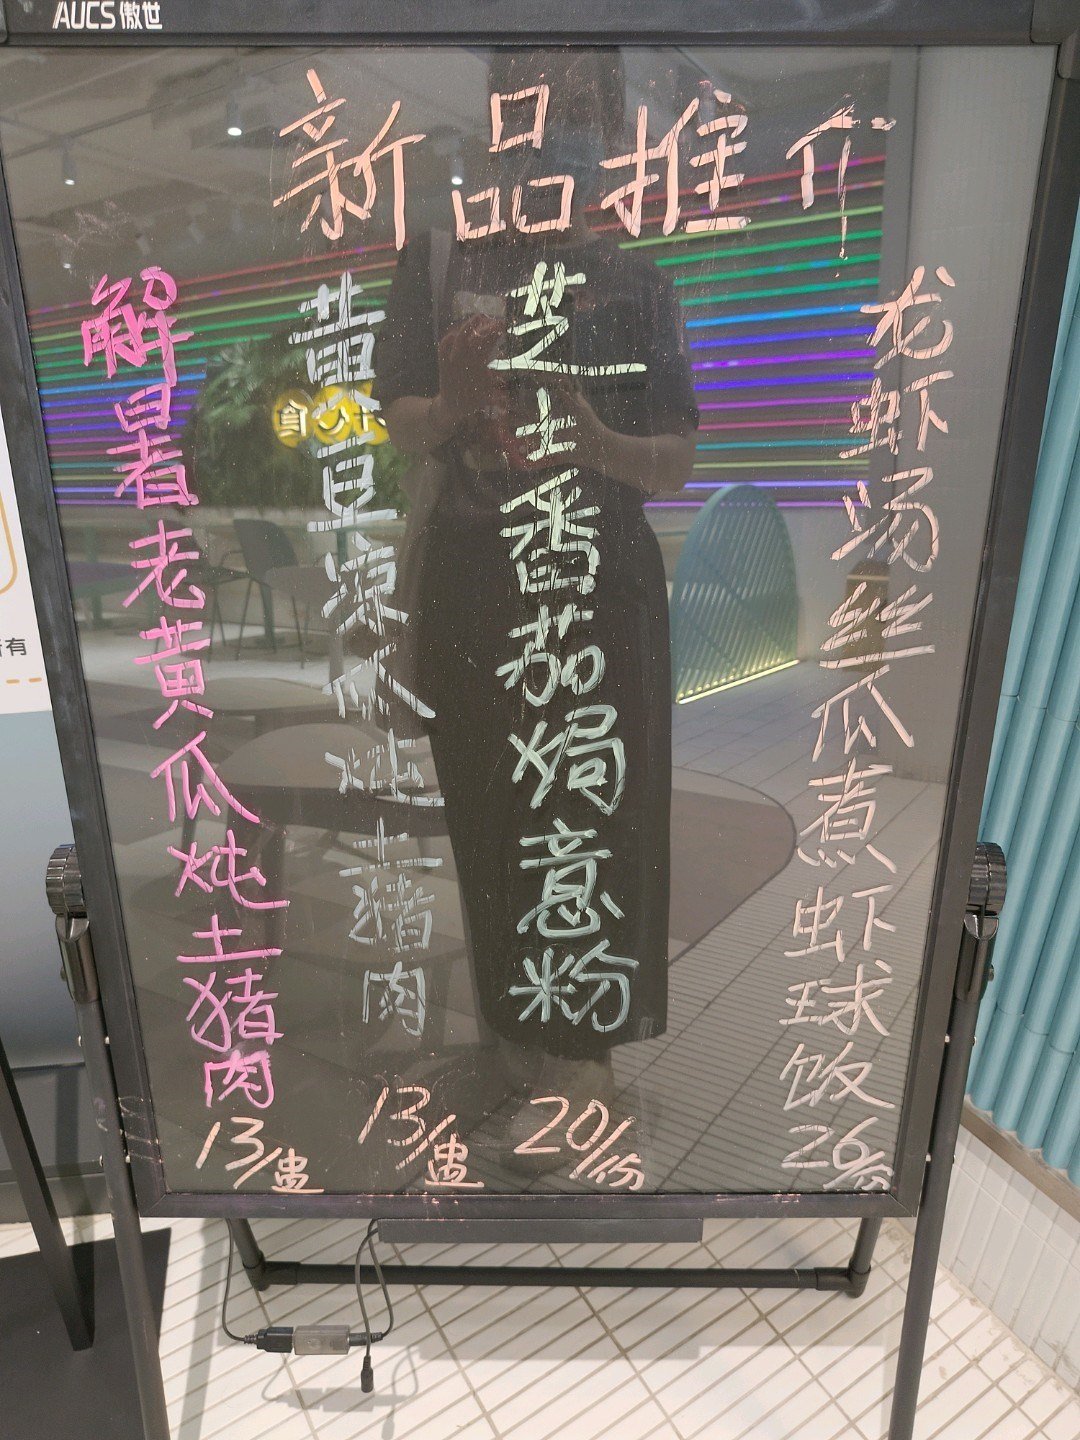 AUCS傲世
新品推介
解暑老黄瓜炖土猪肉
13/盅
黄豆凉瓜炖土猪肉
13/盅
芝士番茄焗意粉
20/份
龙虾汤丝瓜煮虾球饭
26/份
所有